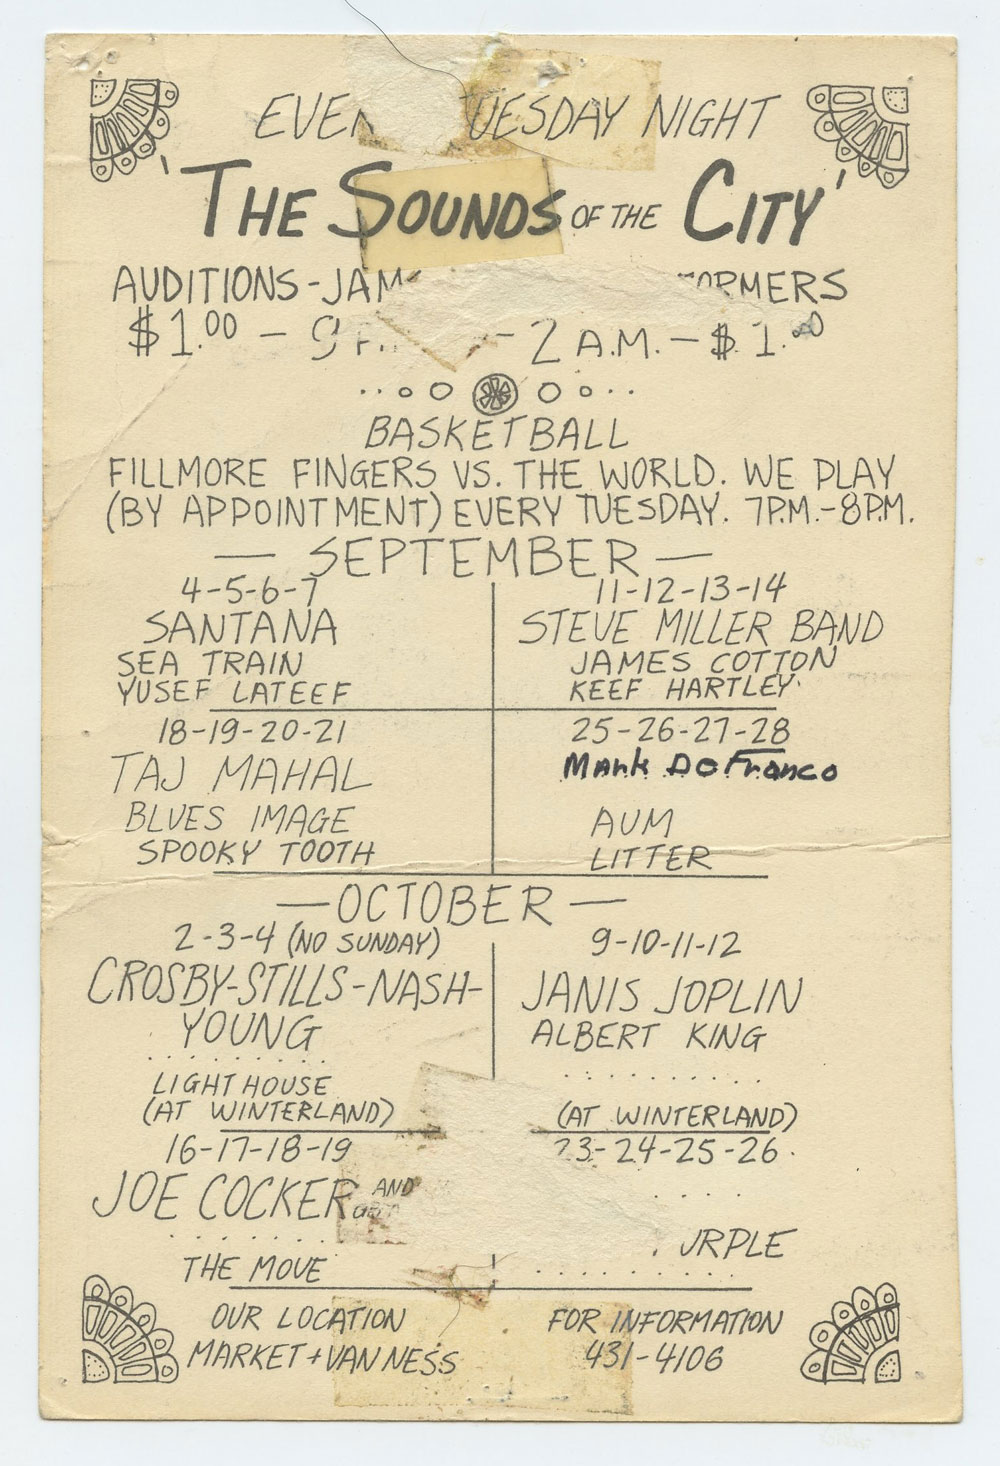 EVE UESDAY NIGHT
'THE SOUNDS OF THE CITY'
AUDITIONS-JAM ORMERS
$1.00 - 9 P - 2 A.M. - $1.00
BASKETBALL
FILLMORE FINGERS VS. THE WORLD. WE PLAY
(BY APPOINTMENT) EVERY TUESDAY. 7P.M.-8P.M.
— SEPTEMBER —
4-5-6-7
SANTANA
SEA TRAIN
YUSEF LATEEF
11-12-13-14
STEVE MILLER BAND
JAMES COTTON
KEEF HARTLEY
18-19-20-21
TAJ MAHAL
BLUES IMAGE
SPOOKY TOOTH
25-26-27-28
Mark DeFranco
AUM
LITTER
— OCTOBER —
2-3-4 (NO SUNDAY)
CROSBY-STILLS-NASH-
YOUNG
LIGHTHOUSE
(AT WINTERLAND)
9-10-11-12
JANIS JOPLIN
ALBERT KING
(AT WINTERLAND)
16-17-18-19
JOE COCKER AND
THE MOVE
23-24-25-26
URPLE
OUR LOCATION
MARKET + VAN NESS
FOR INFORMATION
431-4106